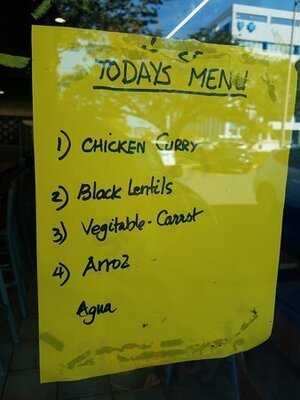 TODAYS MENU
1) CHICKEN CURRY
2) Black Lentils
3) Vegitable - Carrot
4) Arroz
Agua